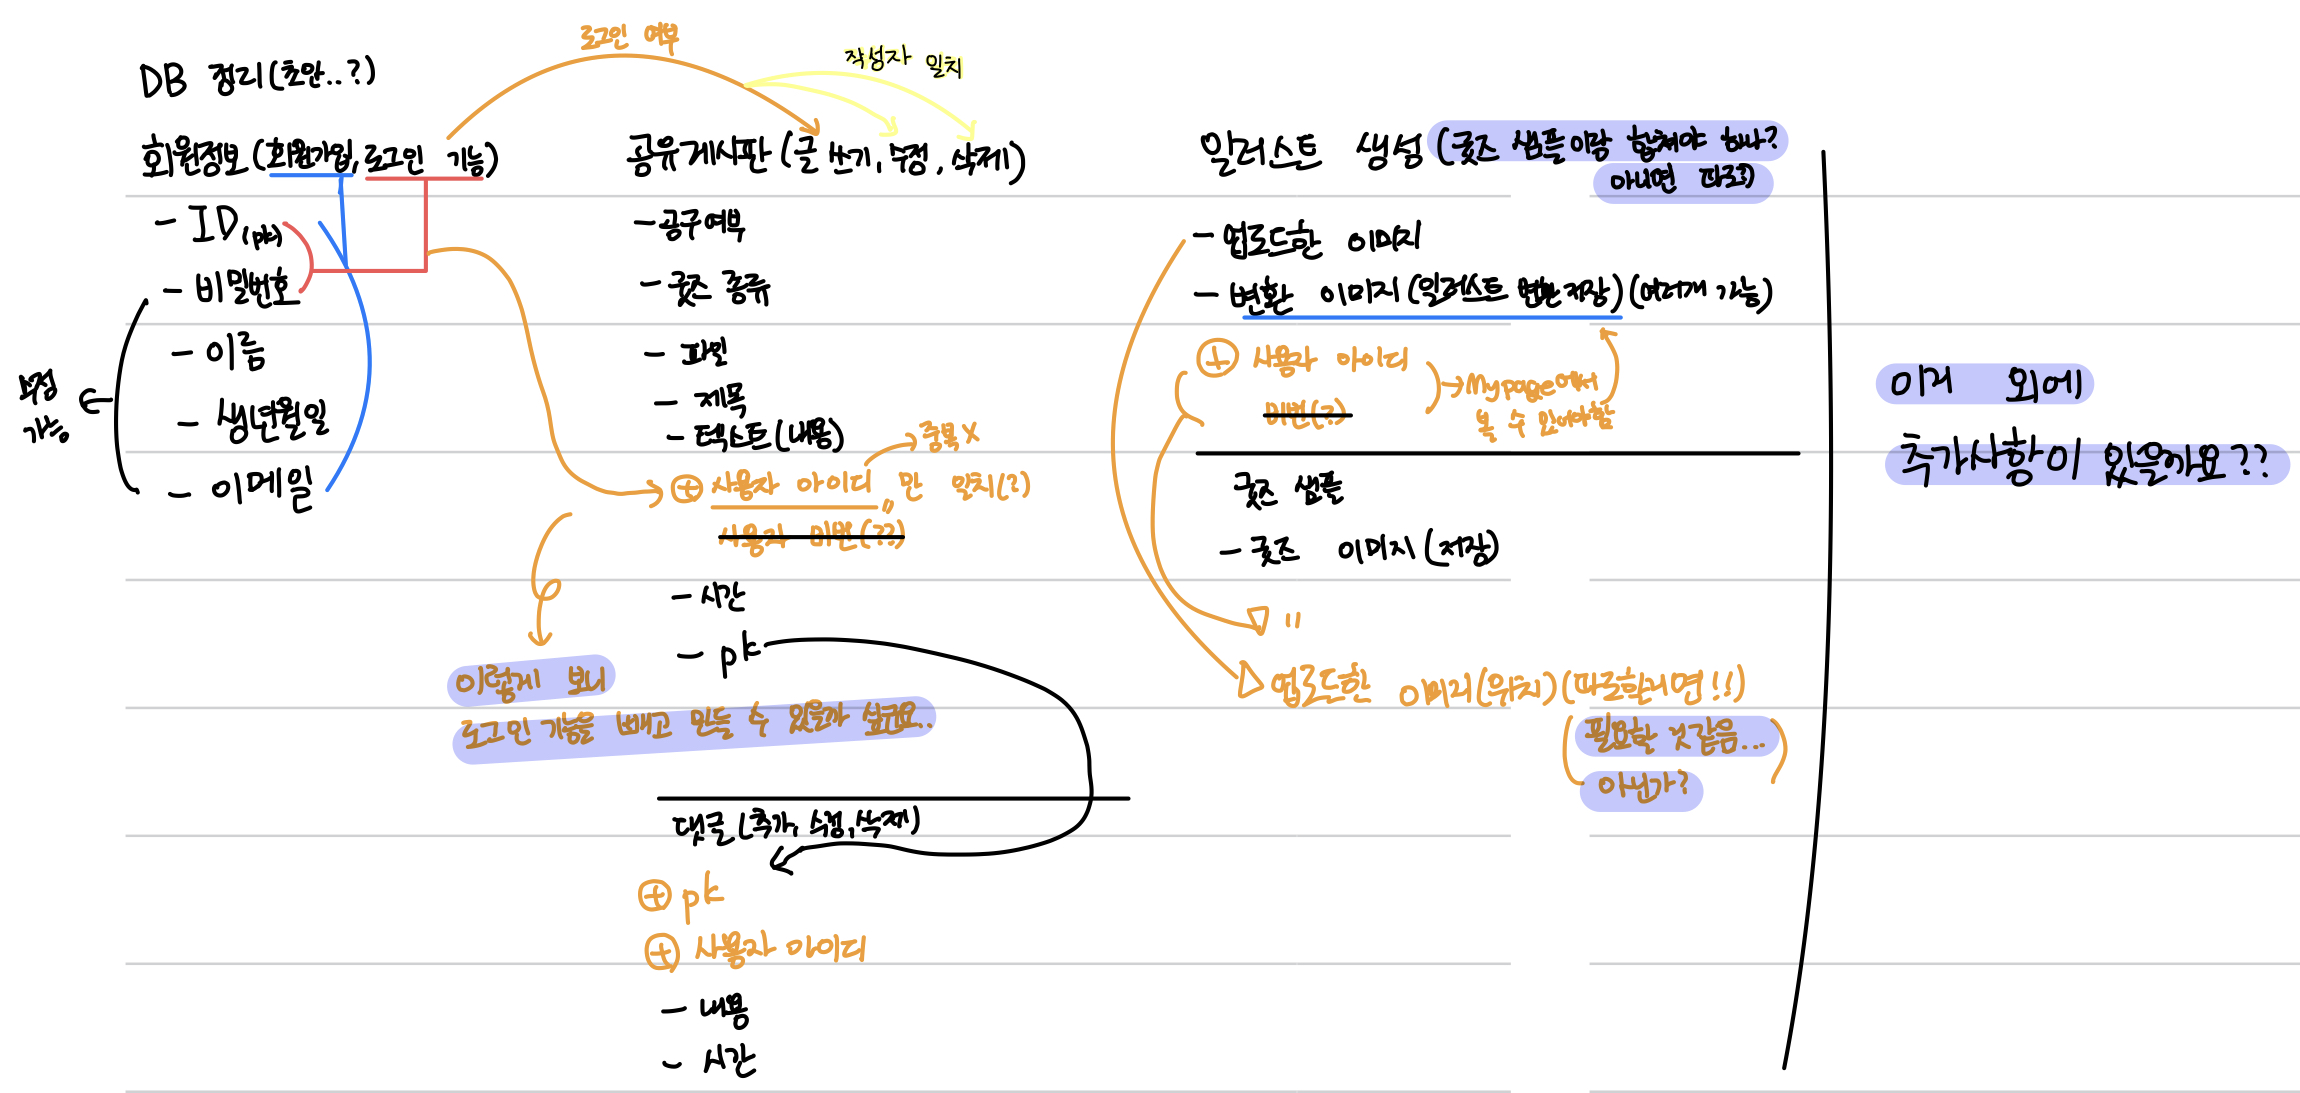 DB 정리(초안..?)
로그인 여부
작성자 일치
회원정보(회원가입, 로그인 기능)
- ID(pk)
- 비밀번호
- 이름
- 생년월일
- 이메일
수정
가능
공유게시판(글 쓰기, 수정, 삭제)
- 공구여부
- 굿즈 종류
- 파일
- 제목
- 텍스트(내용)
→ 중복 X
⊕ 사용자 아이디 만 일치(?)
"
사용자 이번(??)
- 시간
- pk
이렇게 보니
로그인 기능을 빼고 만들 수 있을까 싶군요..
댓글(추가, 수정, 삭제)
⊕ pk
⊕ 사용자 아이디
- 내용
- 시간
일러스트 생성(굿즈 샘플이랑 합쳐야 하나?
아니면 따로?)
- 업로드한 이미지
- 변환 이미지(일러스트 변환 저장)(여러개 가능)
⊕ 사용자 아이디
이번(?)
→ Mypage에서
볼 수 있어야함
굿즈 샘플
- 굿즈 이미지(저장)
"
업로드한 이미지(위치)(따로할거면!!)
필요할 것 같음...
아닌가?
이거 외에
추가사항이 있을까요??